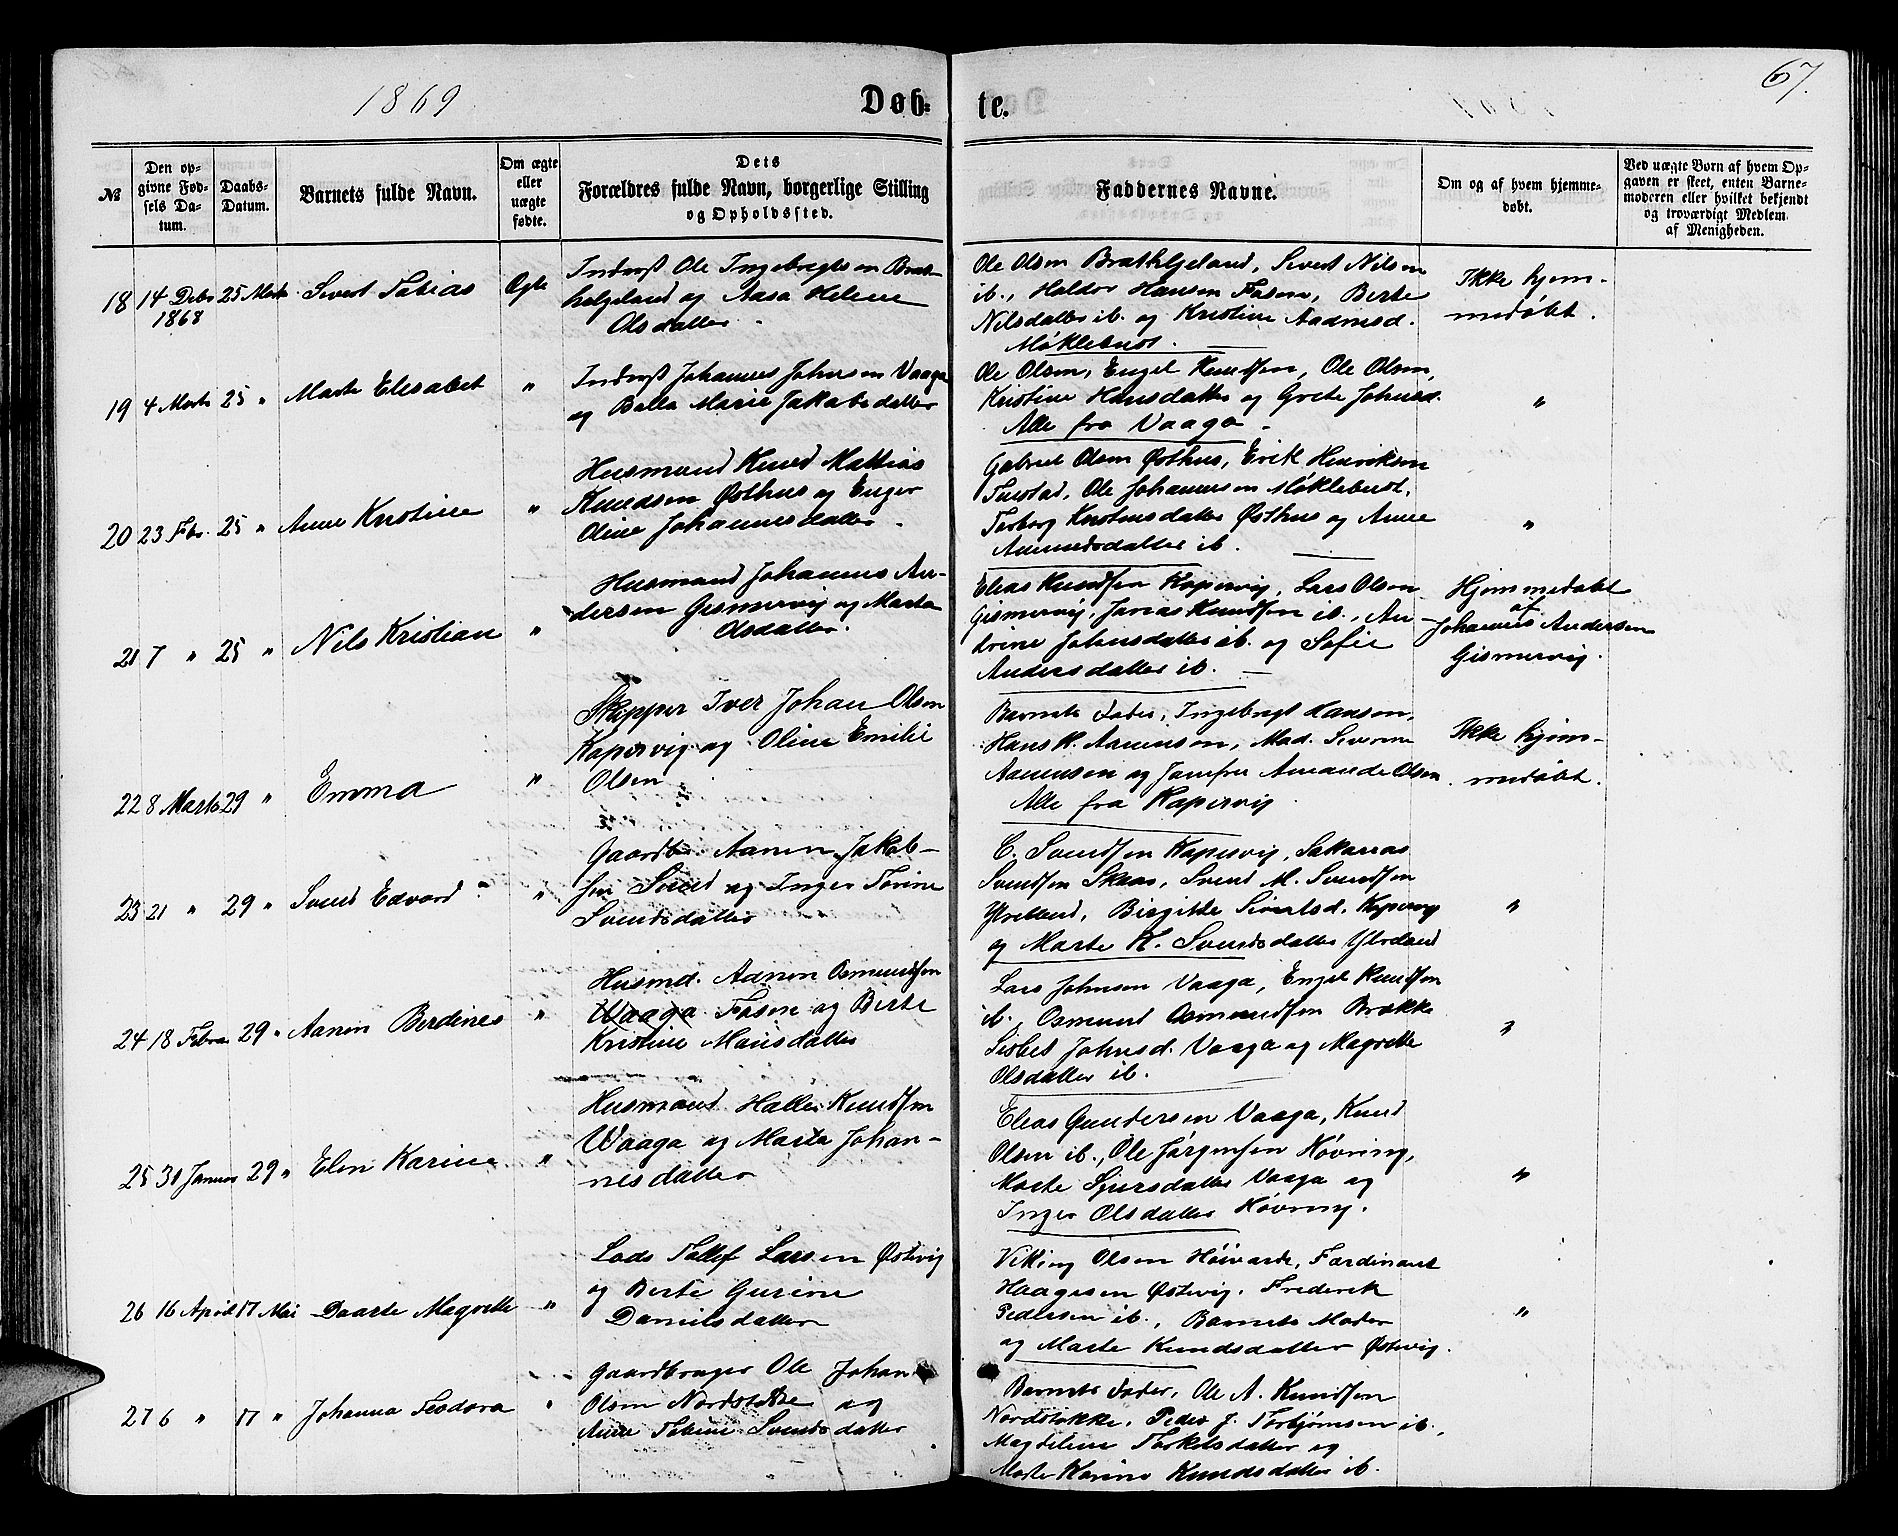 1869
Døb-
te.
67.
№
Den op-
givne Fød-
sels Da-
tum.
Daabs-
Datum.
Barnets fulde Navn.
Om ægte
eller
uægte
fødte.
Dets
Forældres fulde Navn, borgerlige Stilling
og Opholdssted.
Faddernes Navne.
Om og af hvem hjemme-
døbt.
Ved uægte Børn af hvem Op-
gaven er skeet, enten Barne-
moderen eller hvilket bekjendt
og troværdigt Medlem
af Menigheden.
18 14 Debr 25 Marts Sivert Tobias Ægte
1868
Inderst Ole Ingebregtsen Brat-
helgeland og Aasa Helene
Olsdatter
Ole Olsen Brathelgeland, Sivert Nilsen
ib., Haldor Hansen Fosen, Berte
Nilsdatter ib. og Kristine Aadnesd.
Møklebust.
Ikke hjem-
medøbt.
19 4 Marts 25 " Marte Elisabet "
Inderst Johannes Johnsen Vaaga
og Balla Marie Jakobsdatter
Ole Olsen, Engel Knudsen, Ole Olsen,
Kristine Hansdatter og Grete Johnsd.
Alle fra Vaaga
"
20 23 Febr. 25 " Anne Kristine "
Husmand Knud Mathias
Knudsen Østhus og Inger
Oline Johannesdatter
Gabriel Olsen Østhus, Erik Henriksen
Ole Johannesen Møklebust,
Torborg Knutsdatter Østhus og Anne
Aamundsdatter ib.
"
21 7 " 25 " Nils Kristian "
Husmand Johannes An-
dersen Gismervig og Marta
Olsdatter.
Elias Knudsen Kopervig, Lars Olsen
Gismervig, Jonas Knudsen ib., An-
drine Johnsdatter ib. og Sofie
Andersdatter ib.
Hjemmedøbt
af
Johannes Andersen
Gismervig.
22 8 Marts 29 " Emma "
Skipper Iver Johan Olsen
Kopervig og Oline Emilie
Olsen
Barnets Fader, Ingebregt Hansen,
Hans H. Aanensen, Mad. Severine
Aanensen og Jomfru Amande Olsen
Alle fra Kopervig
Ikke hjem-
medøbt.
23 21 " 29 " Svend Edvard "
Gaardbr. Aanen Jakob-
sen Sund og Inger Torine
Svendsdatter
C. Svendsen Kopervig, Sakarias
Svendsen Skaar, Svend M. Svendsen
Ytreland, Birgitte Sivertsd. Kopervig
og Marte K. Svendsdatter Ytreland
"
24 18 Februar 29 " Aanen Berdines "
Husmd. Adnen Osmundsen
Waaga Fosen og Berte
Kristine Monsdatter
Lars Johnsen Vaaga, Engel Knudsen
ib. Osmund Osmundsen Brække
Sisbet Johnsd. Vaaga og Magrette
Olsdatter ib.
"
25 31 Januar 29 " Elen Karine "
Husmand Halle Knudsen
Waaga og Marta Johan-
nesdatter
Elias Gundersen Vaaga, Knud
Olsen ib., Ole Jørgensen Høvring,
Marte Sjursdatter Vaaga og
Inger Olsdatter Høvring.
"
26 16 April 17 Mai Daarte Magrette "
Lods Tollef Larsen Østevig
og Berte Gurine
Danielsdatter
Viking Olsen Høivarde, Ferdinant
Haagesen Østevig, Frederik
Pedersen ib., Barnets Moder
og Marte Knudsdatter Østevig.
"
27 6 " 17 " Johanna Teodora "
Gaardbruger Ole Johan
Olsen Nordstokke og
Anne Tobine Svendsdatter
Barnets Fader, Ole A. Knudsen
Nordstokke, Peder J. Torbjørnsen ib.,
Magdelene Torkelsdatter og
Marte Karine Knudsdatter ib.